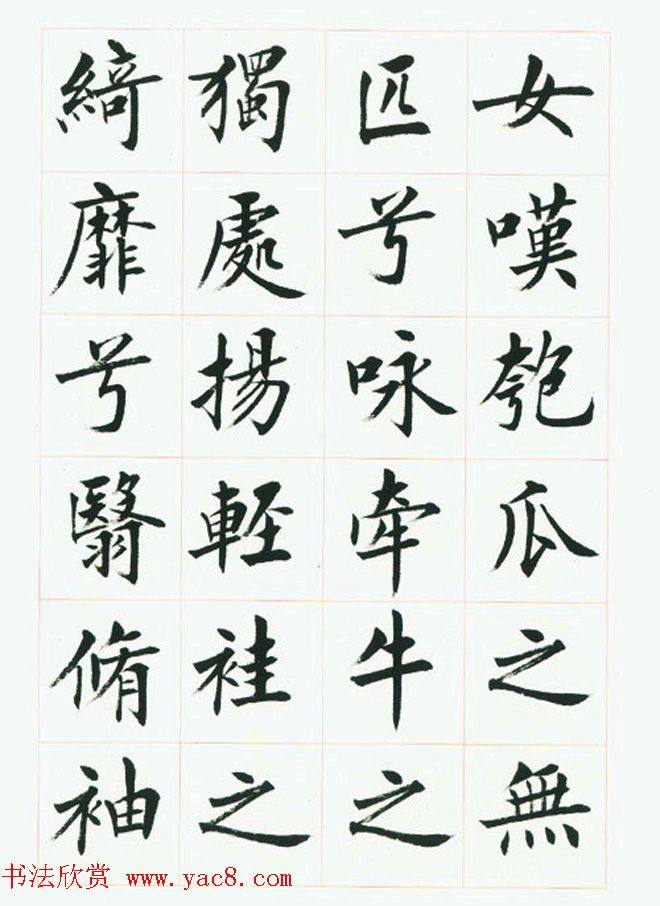 女嘆匏瓜之無
匹兮咏牽牛之
獨處揚輕袿之
綺靡兮翳脩袖
书法欣赏 www.yac8.com